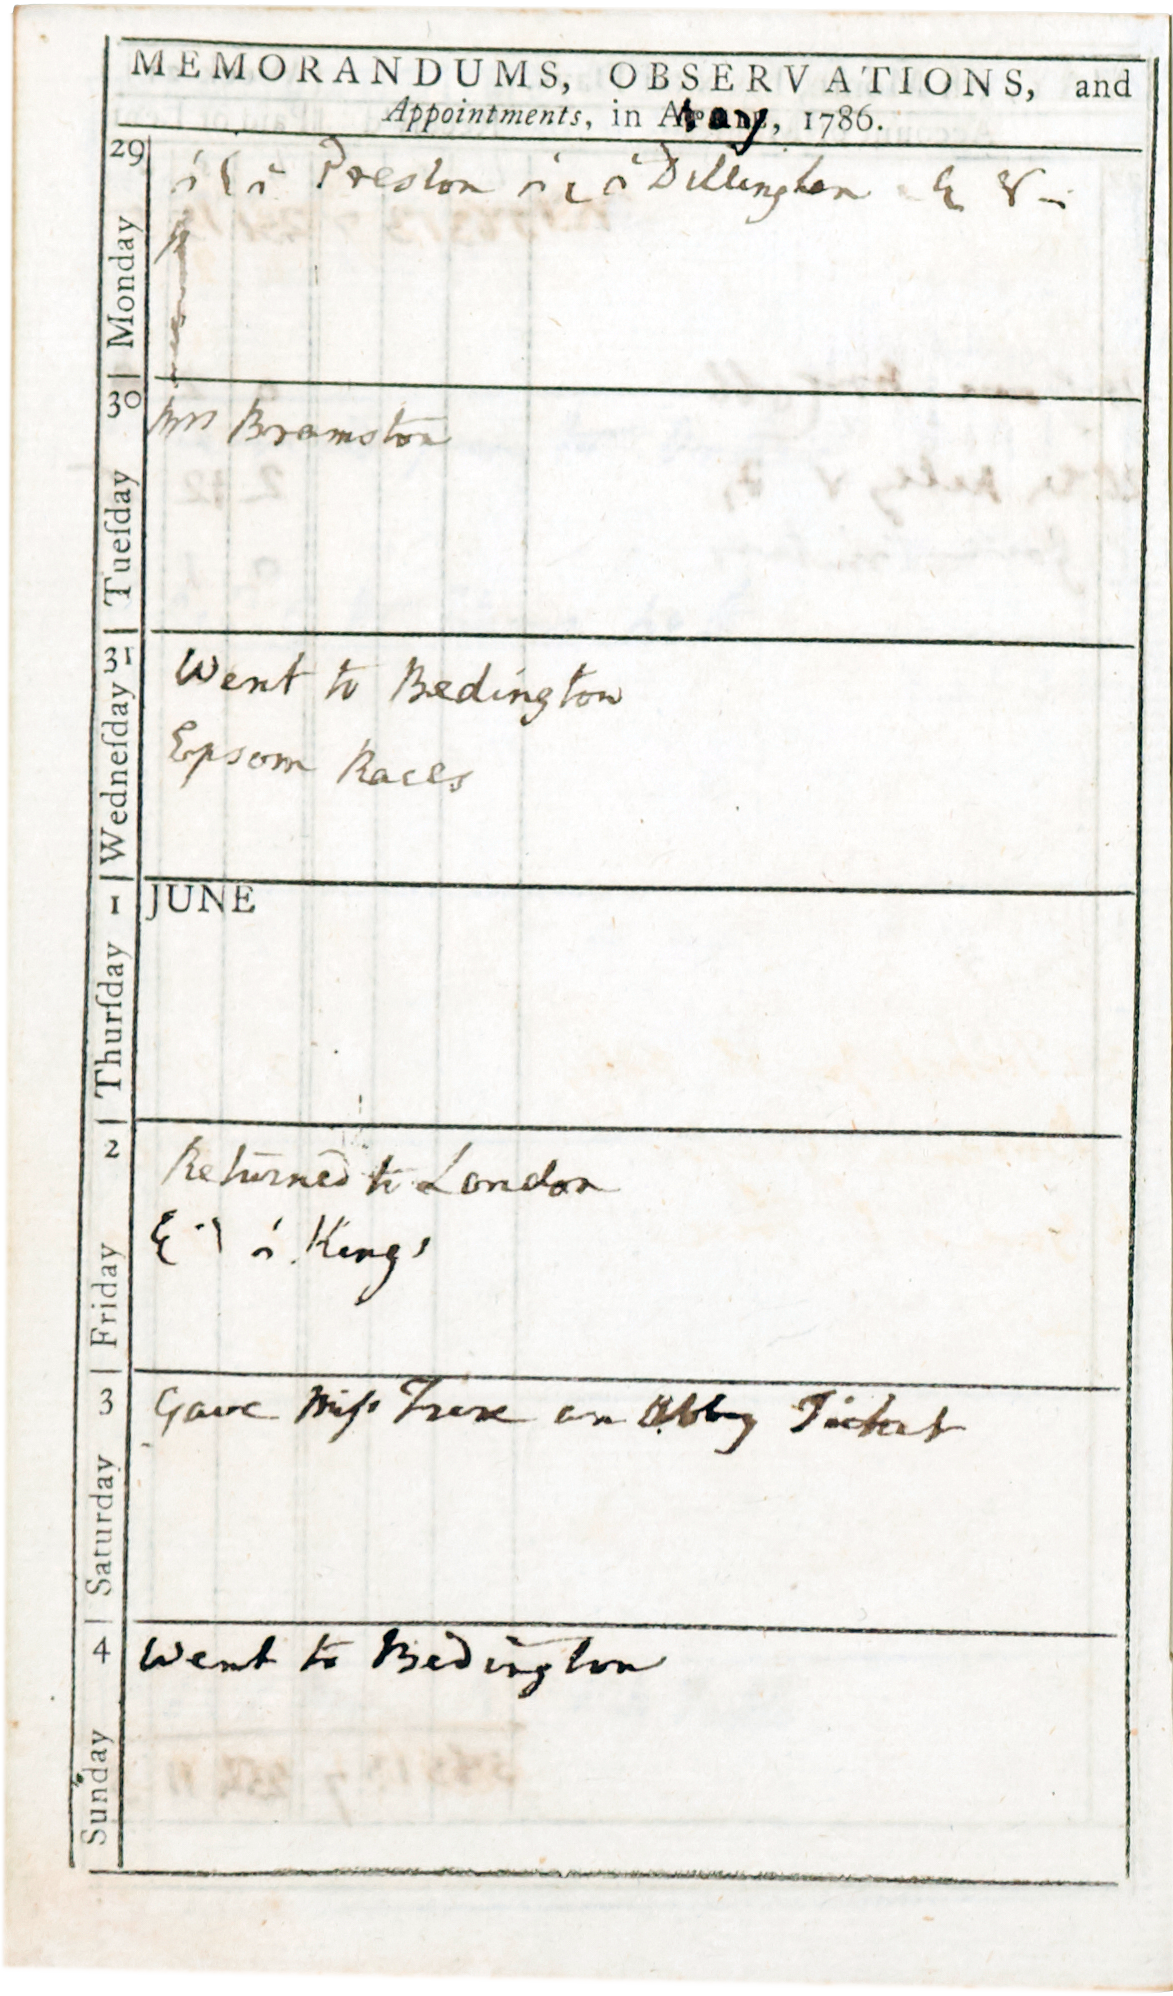 MEMORANDUMS, OBSERVATIONS, and
Appointments, in May, 1786.
29 Monday
Preston Dillington
30 Tueſday
Mrs Bramston
31 Wedneſday
Went to Bedington
Epsom Races
1 Thurſday
JUNE
2 Friday
Returned to London
Kings
3 Saturday
Gave Miſs an Abby Ticket
4 Sunday
Went to Bedington